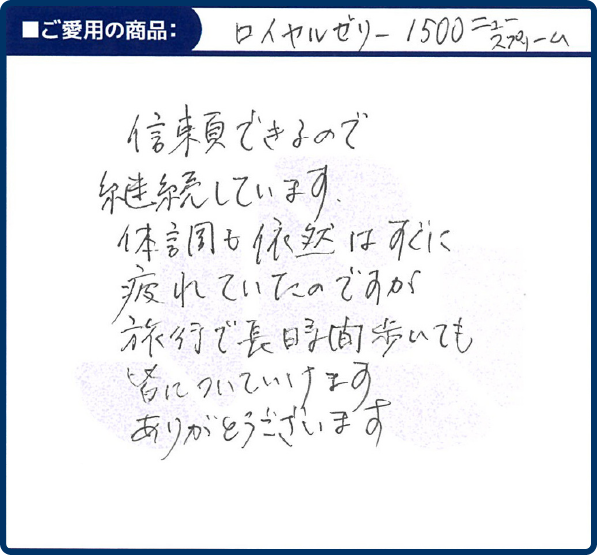 ■ご愛用の商品： ロイヤルゼリー 1500 ニュー
スプリーム
信頼できるので
継続しています。
体調も依然はすぐに
疲れていたのですが
旅行で長時間歩いても
皆についていけます
ありがとうございます